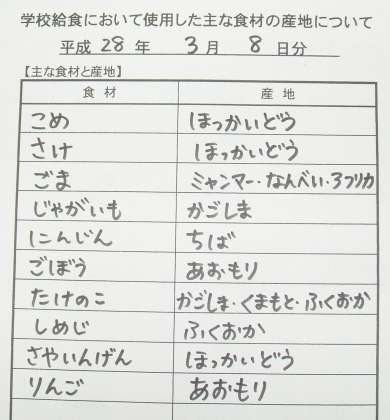 学校給食において使用した主な食材の産地について
平成 28 年 3 月 8 日分
【主な食材と産地】
食材 産地
こめ ほっかいどう
さけ ほっかいどう
ごま ミャンマー・なんべい・アフリカ
じゃがいも かごしま
にんじん ちば
ごぼう あおもり
たけのこ かごしま・くまもと・ふくおか
しめじ ふくおか
さやいんげん ほっかいどう
りんご あおもり